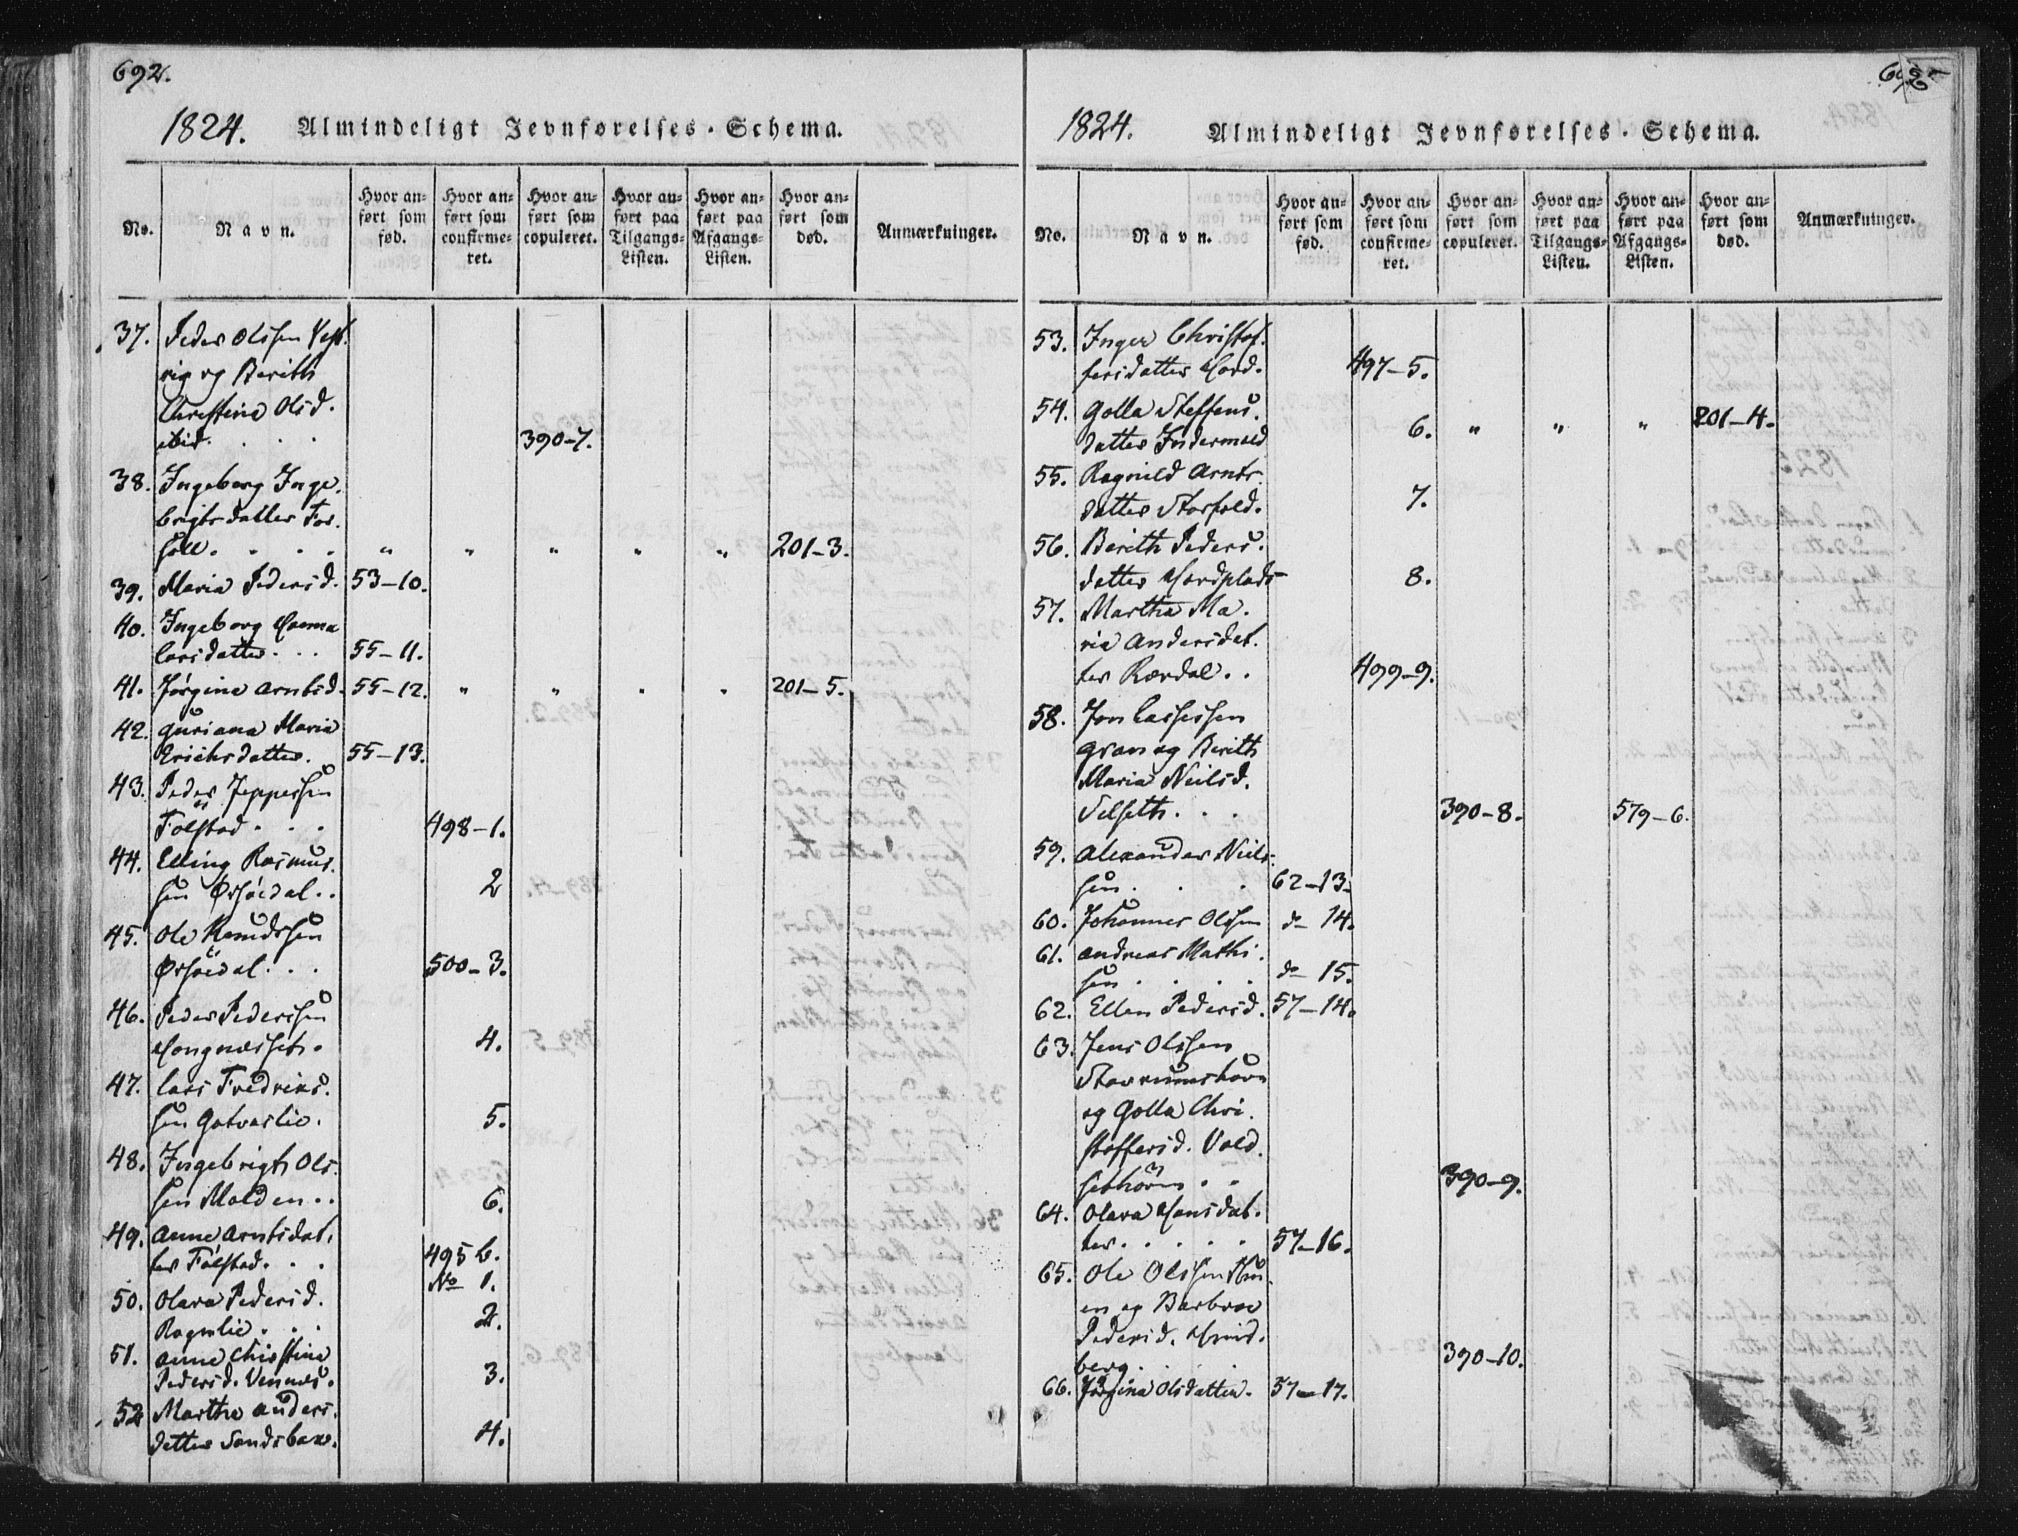 692.
1824. Almindeligt Jevnførelses-Schema.
No.
Navn.
Hvor an-
ført som
fød.
Hvor an-
ført som
confirme-
ret.
Hvor an-
ført som
copuleret.
Hvor an-
ført paa
Tilgangs-
Listen.
Hvor an-
ført paa
Afgangs-
Listen.
Hvor an-
ført som
død.
Anmærkninger.
37. Peder Olssen
og Berith
Christina Olsd.
ibid. . . . 390-7.
38. Ingeborg Inge.
brigtsdatter For.
. . . . " " " " " 201-3.
39. Maria Pedersd. 53-10.
40. Ingeborg
Larsdatter . . . 55-11.
41. Jørgine Arntsd. 55-12. " " " " 201-5.
42. Guriana Maria
Erichsdatter. 55-13.
43. Peder Jeppessen
Folstad . . . 498-1.
44. Elling Rasmus.
sen Ørsøidal . . 2
45. Ole Knudssen
Ørsøidal . . . 500-3.
46. Peder Pederssen
4.
47. Lars Fredrins.
sen Gotvaslie. 5.
48. Ingebrigt Ols.
sen Molden . . 6.
49. Anne Arntsdat.
ter Folstad . . . 495 b.
No 1.
50. Olava Pedersd.
Rognlie . . . 2.
51. Anne Christine
Pedersd. Vennes. 3.
52 Martha Anders.
datter Sandsbax. 4.
1824. Almindeligt Jevnførelses-Schema.
No.
Navn.
Hvor an-
ført som
fød.
Hvor an-
ført som
confirme-
ret.
Hvor an-
ført som
copuleret.
Hvor an-
ført paa
Tilgangs-
Listen.
Hvor an-
ført paa
Afgangs-
Listen.
Hvor an-
ført som
død.
Anmærkninger.
53. Inger Christof.
fersdatter 497-5.
54. Golla Steffens.
datter Indermold 6. " " " 201-4.
55. Ragnild Arnts.
datter Storfold. 7.
56. Berith Peders.
datter 8.
57. Martha Ma.
ria Andersdat.
ter Rærdal . . 499-9.
58. Jon Lassessen
Gran og Berith
Maria Neilsd.
Selseth . . . 390-8. 579-6.
59. Alexander Niels.
sen. . . 62-13.
60. Johannes Olssen do 14.
61. Andreas Mathi.
sen . . . . do 15.
62. Ellen Pedersd. 57-14.
63. Jens Olssen
og Golla Chri.
stoffersd. Vold.
. . 390-9.
64. Olava Hansdat.
ter . . . . . 57-16.
65. Ole Olssen
en og Barbroe
Pedersd.
berg. . . . 390-10.
66. Jørgina Olsdatter. 57-17.